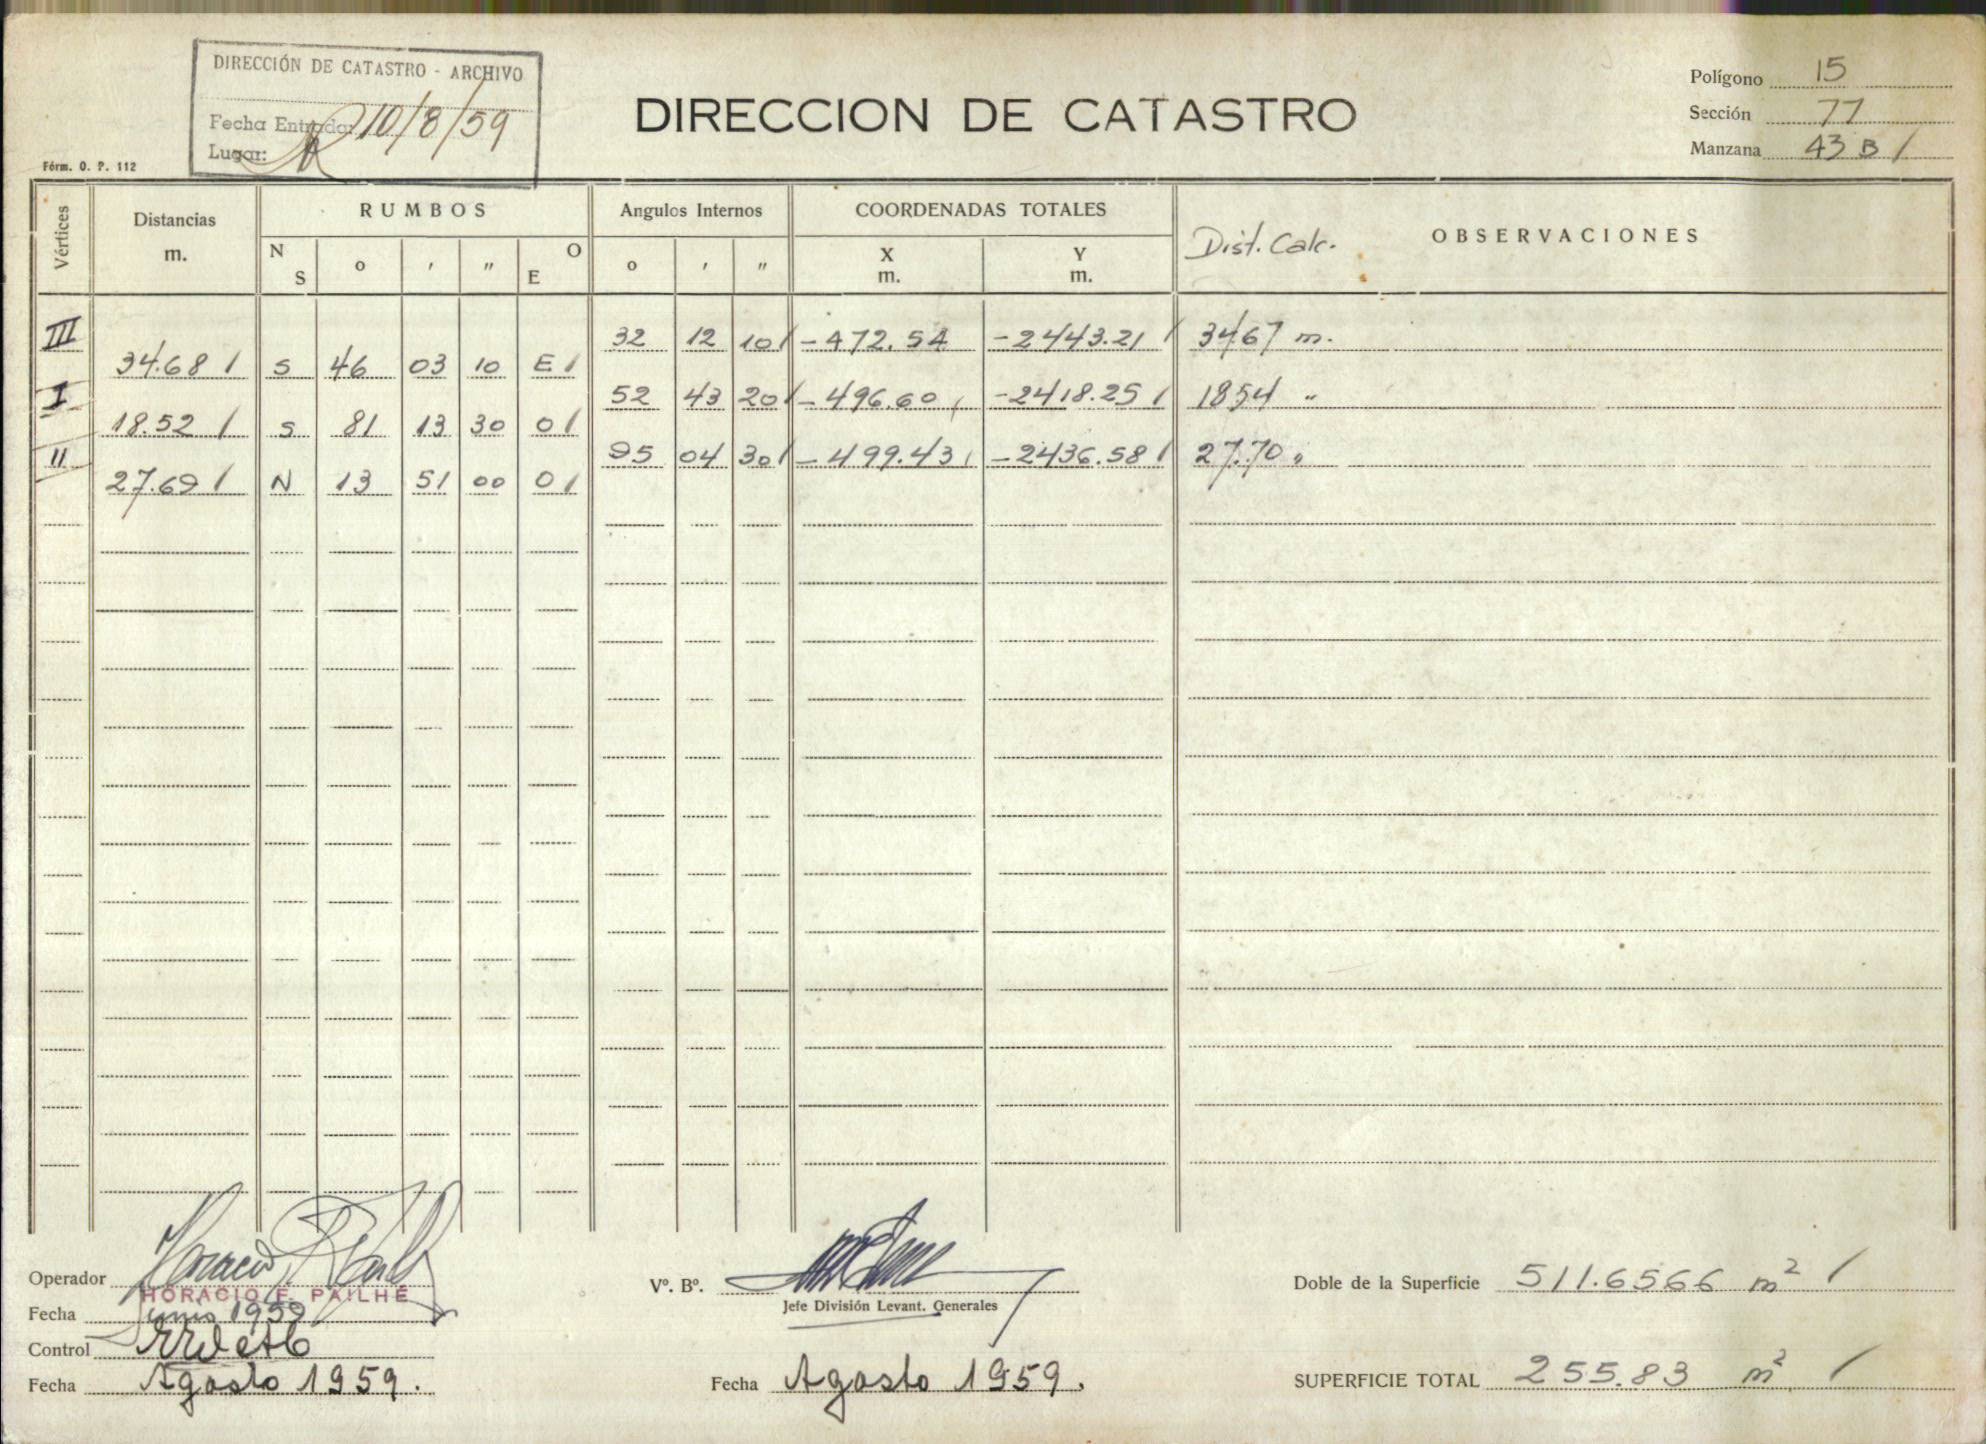 DIRECCIÓN DE CATASTRO - ARCHIVO
Fecha Entrada: 10/8/59
Lugar:
Fórm. O. P. 112
DIRECCION DE CATASTRO
Polígono 15
Sección 77
Manzana 43 B /
Vértices
Distancias
m.
RUMBOS
N
S
o
,
,,
O
E
Angulos Internos
o
,
,,
COORDENADAS TOTALES
X
m.
Y
m.
Dist. Calc.
OBSERVACIONES
III 32 12 10/ -472.54 -2443.21/ 34.67 m.
34.68 / S 46 03 10 E/
I 52 43 20/ -496.60 -2418.25/ 18.54 "
18.52 / S 81 13 30 O/
II 95 04 30/ -499.43 -2436.58/ 27.70 "
27.69 / N 13 51 00 O/
Operador
HORACIO E. PAILHÉ
Fecha Junio 1959
Control
Fecha Agosto 1959.
Vº. Bº.
Jefe División Levant. Generales
Fecha Agosto 1959.
Doble de la Superficie 511.6566 m² /
SUPERFICIE TOTAL 255.83 m² /